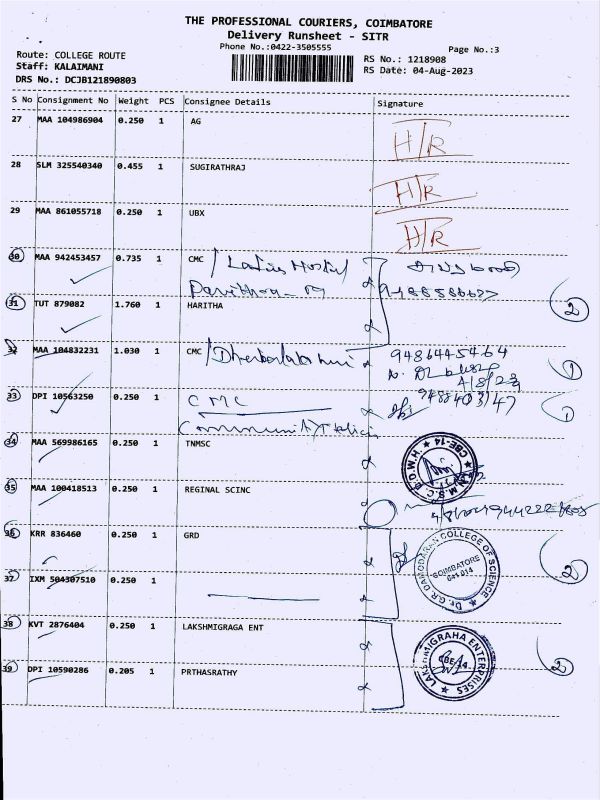 THE PROFESSIONAL COURIERS, COIMBATORE
Delivery Runsheet - SITR
Phone No.:0422-3505555
Page No.:3
Route: COLLEGE ROUTE
Staff: KALAIMANI
DRS No.: DCJB121890803
RS No.: 1218908
RS Date: 04-Aug-2023
S No Consignment No Weight PCS Consignee Details Signature
27 MAA 104986904 0.250 1 AG H/R
28 SLM 325540340 0.455 1 SUGIRATHRAJ H/R
29 MAA 861055718 0.250 1 UBX H/R
30 MAA 942453457 0.735 1 CMC / Ladies Hostel
31 TUT 879082 1.760 1 HARITHA 2
32 MAA 104832231 1.030 1 CMC 9486445464 1
4/8/23
33 DPI 10563250 0.250 1 CMC 9488403147 1
34 MAA 569986165 0.250 1 TNMSC CBE-14
35 MAA 100418513 0.250 1 REGINAL SCINC
36 KRR 836460 0.250 1 GRD 2
Dr. G.R. DAMODARAN COLLEGE OF SCIENCE
COIMBATORE
641 014
37 IXM 504307510 0.250 1
38 KVT 2876404 0.250 1 LAKSHMIGRAGA ENT 2
LAKSHMIGRAHA ENTERPRISES
39 DPI 10590286 0.205 1 PRTHASRATHY